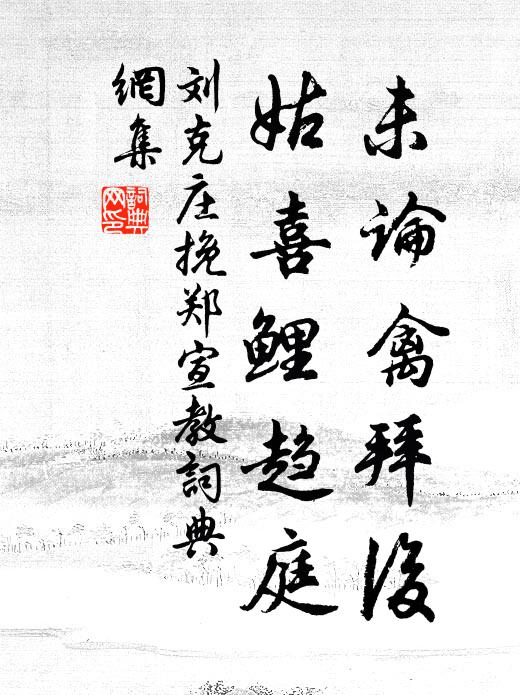 未論禽拜後
姑喜鯉趋庭
刘克庄挽郑宣教詞典
網集
詞典網印